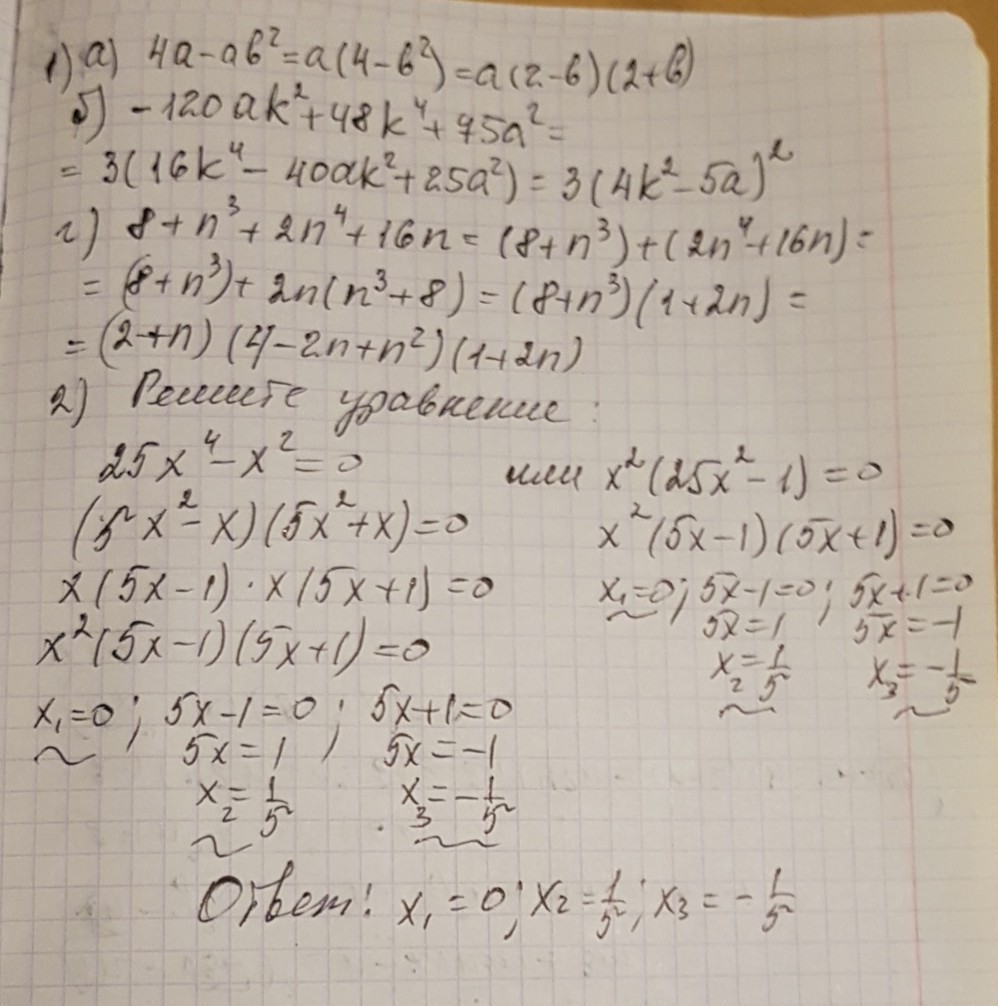 1) а) 4a-ab²=a(4-b²)=a(2-b)(2+b)
б) -120ak²+48k⁴+75a²=
= 3(16k⁴-40ak²+25a²)=3(4k²-5a)²
г) 8+n³+2n⁴+16n=(8+n³)+(2n⁴+16n)=
=(8+n³)+2n(n³+8)=(8+n³)(1+2n)=
=(2+n)(4-2n+n²)(1+2n)
2) Решите уравнение:
25x⁴-x²=0 или x²(25x²-1)=0
(5x²-x)(5x²+x)=0 x²(5x-1)(5x+1)=0
x(5x-1)·x(5x+1)=0 x₁=0; 5x-1=0; 5x+1=0
x²(5x-1)(5x+1)=0 5x=1 5x=-1
x₂=1/5 x₃=-1/5
x₁=0; 5x-1=0; 5x+1=0
5x=1 5x=-1
x₂=1/5 x₃=-1/5
Ответ: x₁=0; x₂=1/5; x₃=-1/5